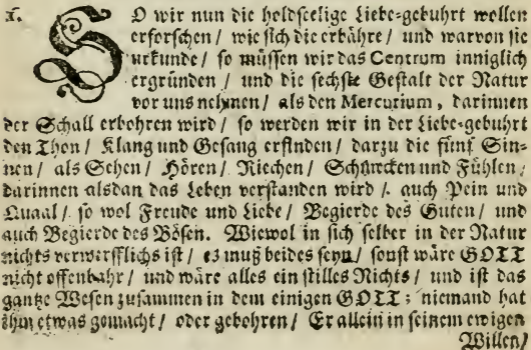 1.
SO wir nun die holdseelige Liebe-gebuhrt wollen
erforschen / wie sich die erbähre / und warvon sie
urkunde / so müssen wir das Centrum inniglich
ergründen / und die sechste Gestalt der Natur
vor uns nehmen / als den Mercurium, darinnen
der Schall erbohren wird / so werden wir in der Liebe-gebuhrt
den Thon / Klang und Gesang erfinden / darzu die fünf Sin-
nen / als Sehen / Hören / Riechen / Schmecken und Fühlen /
darinnen alsdan das Leben verstanden wird / auch Pein und
Quaal / so wol Freude und Liebe / Begierde des Guten / und
auch Begierde des Bösen. Wiewol in sich selber in der Natur
nichts verwerfflichs ist / es muß beides seyn / sonst wäre GOTT
nicht offenbahr / und wäre alles ein stilles Nichts / und ist das
gantze Wesen zusammen in dem einigen GOTT; niemand hat
ihm etwas gemacht / oder gebohren / Er allein in seinem ewigen
Willen /